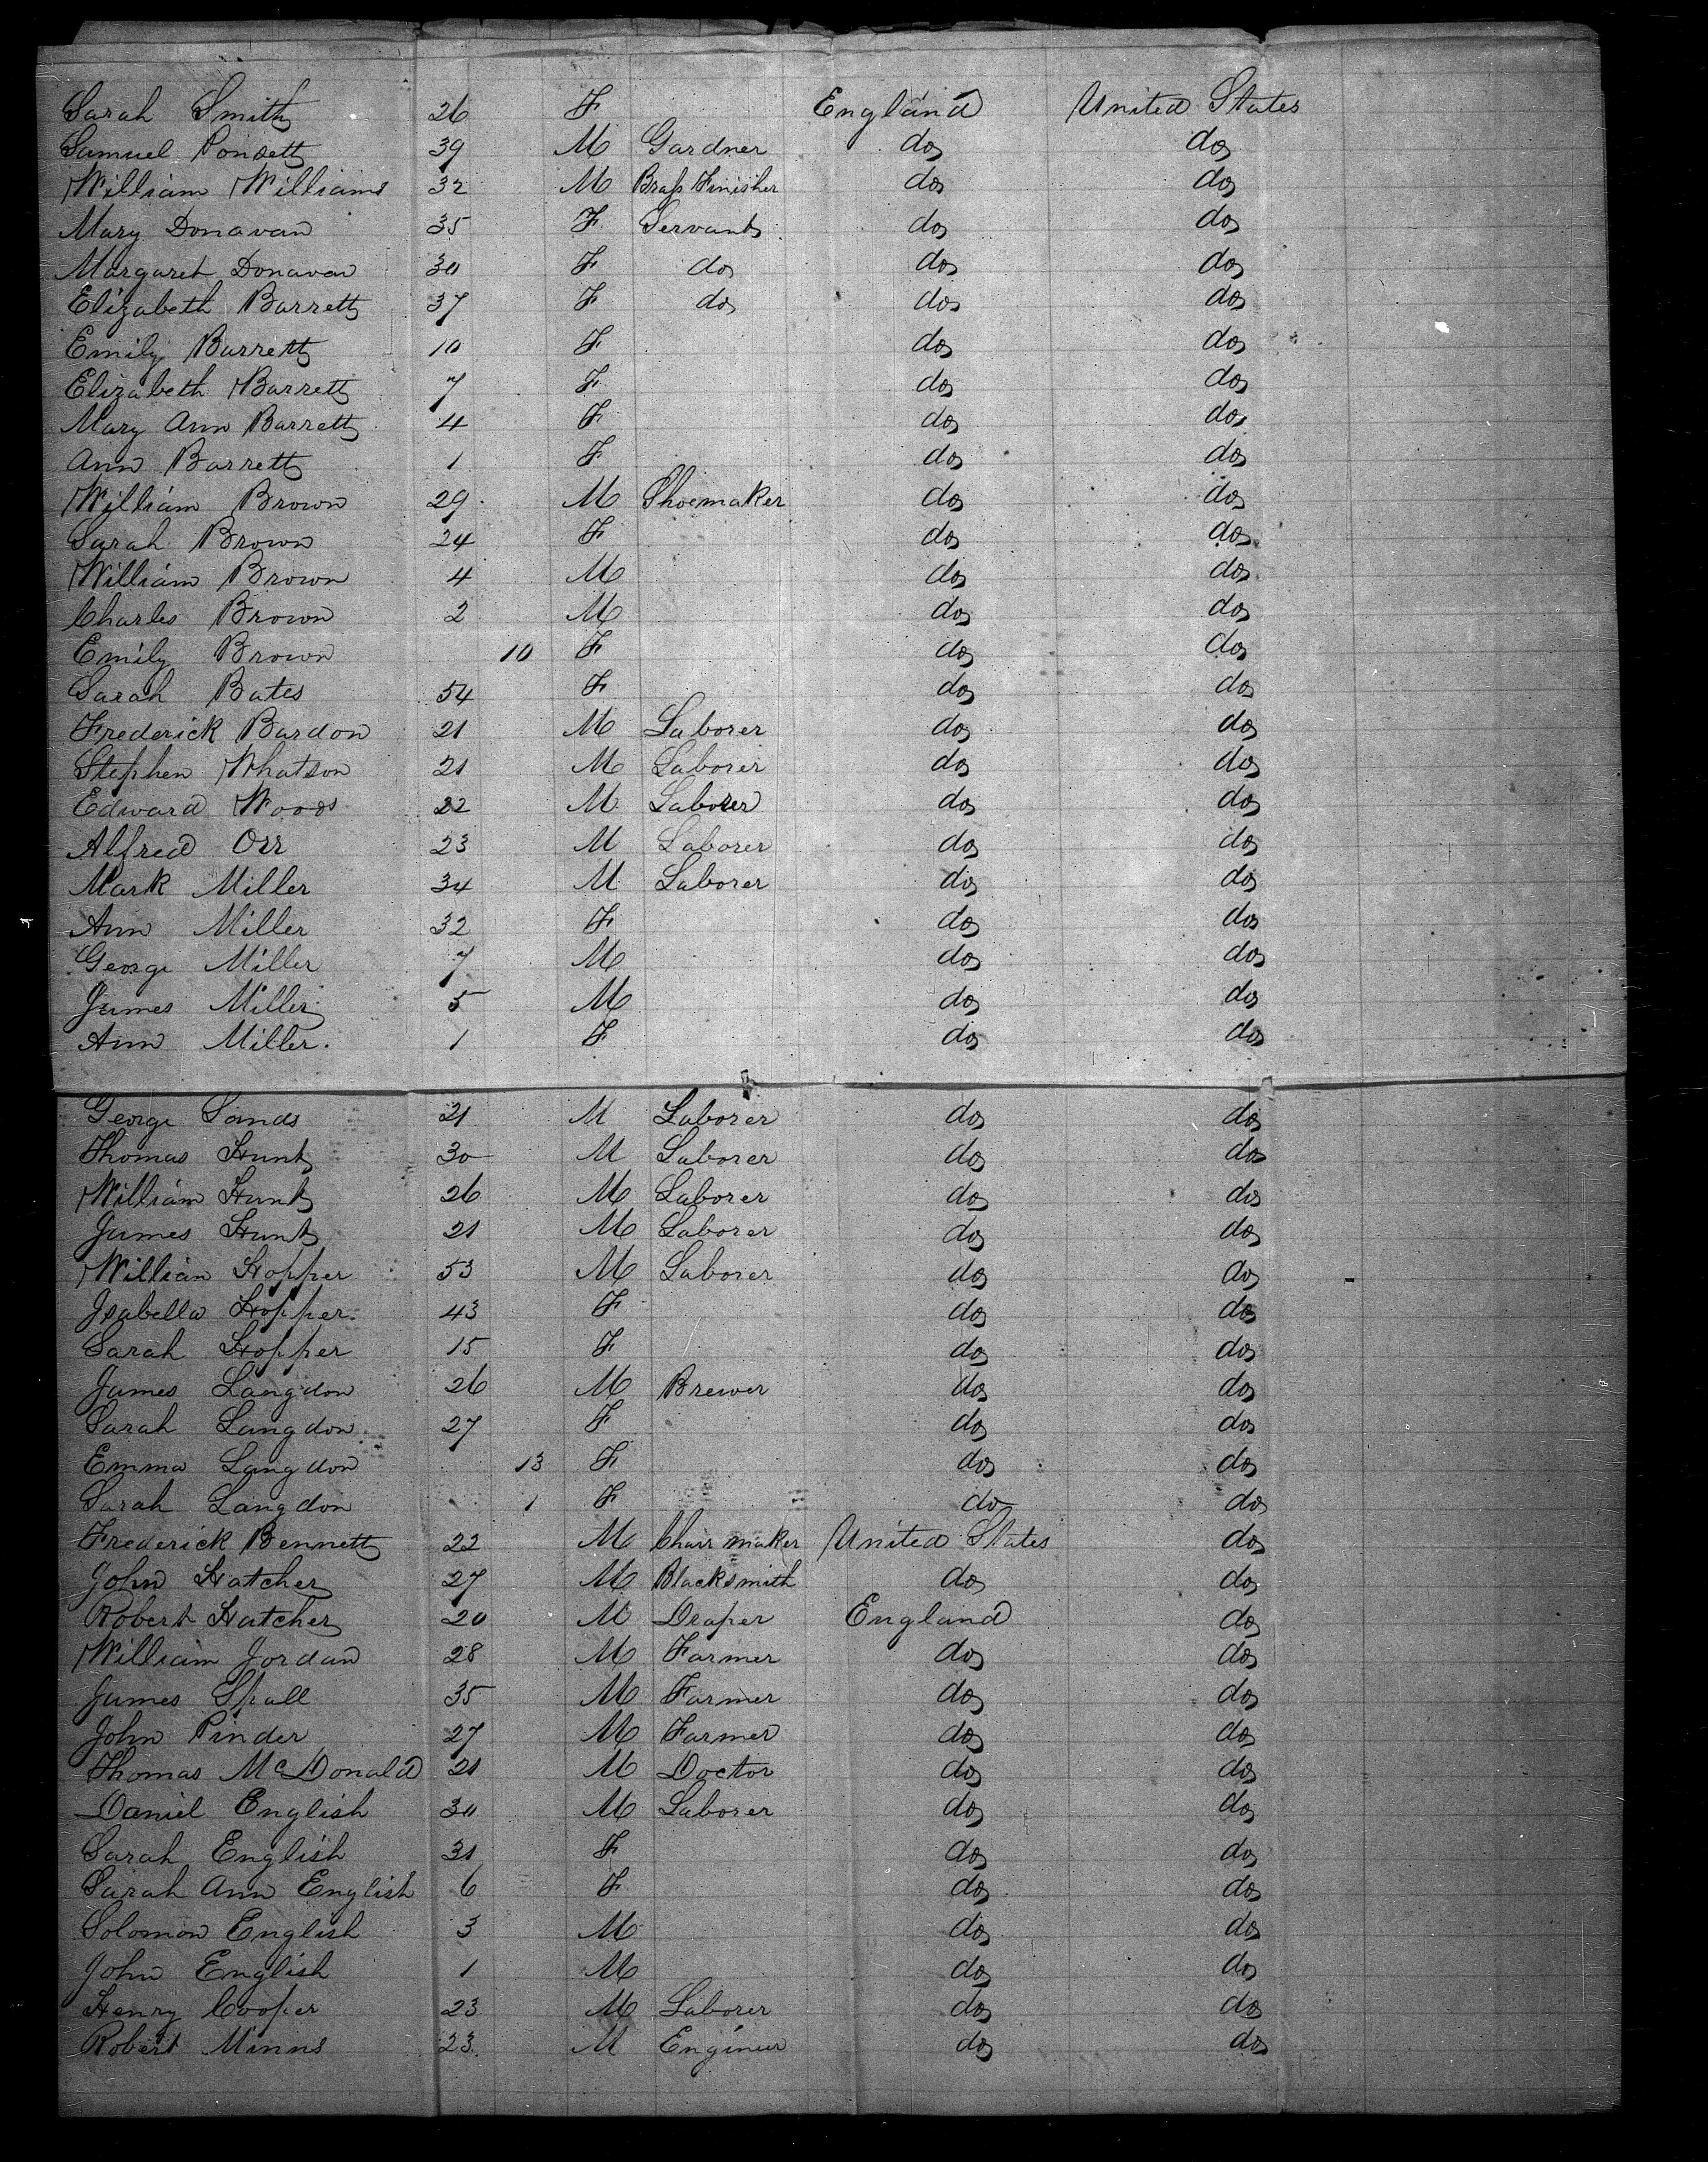 Sarah Smith 26 F England United States
Samuel Ponsett 39 M Gardner do do
William Williams 32 M Brass Finisher do do
Mary Donavan 35 F Servant do do
Margaret Donavan 30 F do do do
Elizabeth Barrett 37 F do do do
Emily Barrett 10 F do do
Elizabeth Barrett 7 F do do
Mary Ann Barrett 4 F do do
Ann Barrett 1 F do do
William Brown 29 M Shoemaker do do
Sarah Brown 24 F do do
William Brown 4 M do do
Charles Brown 2 M do do
Emily Brown 10 F do do
Sarah Bates 54 F do do
Frederick Bardon 21 M Laborer do do
Stephen Whatson 21 M Laborer do do
Edward Woods 22 M Laborer do do
Alfred Orr 23 M Laborer do do
Mark Miller 34 M Laborer do do
Ann Miller 32 F do do
George Miller 7 M do do
James Miller 5 M do do
Ann Miller. 1 F do do
George Sands 21 M Laborer do do
Thomas Hunt 30 M Laborer do do
William Hunt 26 M Laborer do do
James Hunt 21 M Laborer do do
William Hopper 53 M Laborer do do
Isabella Hopper 43 F do do
Sarah Hopper 15 F do do
James Langdon 26 M Brewer do do
Sarah Langdon 27 F do do
Emma Langdon 13 F do do
Sarah Langdon 1 F do do
Frederick Bennett 22 M Chair maker United States do
John Hatcher 27 M Blacksmith do do
Robert Hatcher 20 M Draper England do
William Jordan 28 M Farmer do do
James Spall 35 M Farmer do do
John Pinder 27 M Farmer do do
Thomas McDonald 21 M Doctor do do
Daniel English 30 M Laborer do do
Sarah English 31 F do do
Sarah Ann English 6 F do do
Solomon English 3 M do do
John English 1 M do do
Henry Cooper 23 M Laborer do do
Robert Minns 23 M Engineer do do